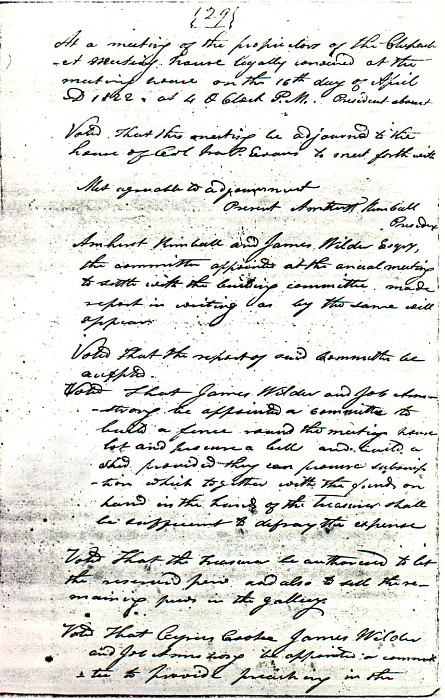 {29}
At a meeting of the proprietors of the
et Meeting house legally convened at the
meeting house on the 16th day of April
AD 1822. at 4 O Clock P.M. President absent
Voted That this meeting be adjourned to the
house of Col P. Evans to meet forth with
Met agreeable to adjournment
Present Amherst Kimball
President
Amherst Kimball and James Wilder Esqr,
the committee appointed at the annual meeting
to settle with the building committee made
report in writing as by the same will
appear.
Voted That the report of said Committee be
accepted.
Voted That James Wilder and Job Arm-
-strong be appointed a committee to
build a fence round the meeting house
lot and procure a bell and build a
shed provided they can procure subscrip
-tion which together with the funds on
hand in the hands of the Treasurer shall
be sufficient to defray the expense
Voted That the treasurer be authorised to let
the reserved pews and also to sell the re-
maining pews in the gallery.
Voted That Cyrus Cooke James Wilder
and Job Armstrong be appointed a commit
tee to provide preaching in the